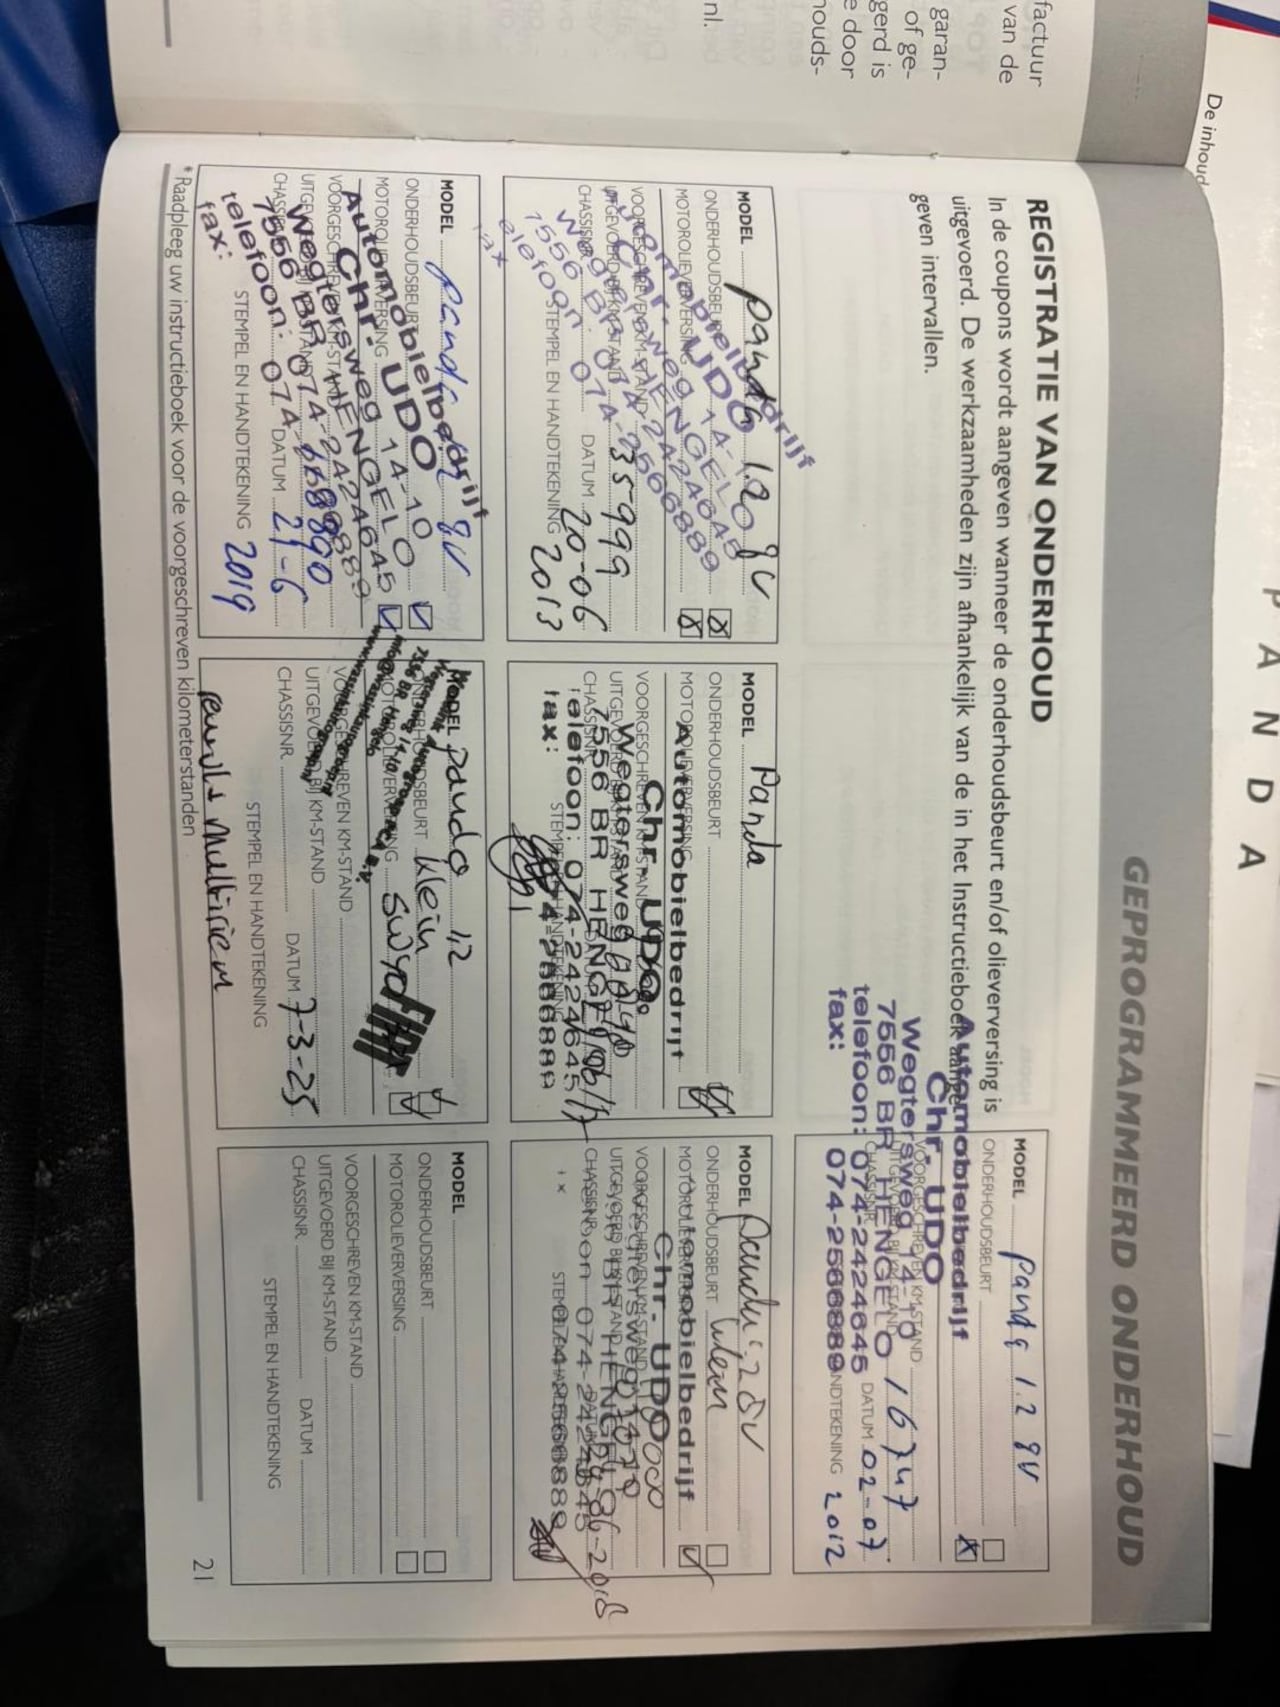 factuur
van de
garan-
of ge-
gerd is
e door
houds-
nl.
De inhoud
PANDA
GEPROGRAMMEERD ONDERHOUD
REGISTRATIE VAN ONDERHOUD
In de coupons wordt aangeven wanneer de onderhoudsbeurt en/of olieverversing is
uitgevoerd. De werkzaamheden zijn afhankelijk van de in het Instructieboek aange-
geven intervallen.
MODEL Panda 1.2 8V
ONDERHOUDSBEURT
Automobielbedrijf
Chr. UDO
VOORGESCHREVEN KM-STAND
Wegtersweg 14-10
7556 BR HENGELO 16747
CHASSISNR. DATUM 02-07
telefoon: 074-2424645
fax: 074-2566889
HANDTEKENING 2012
MODEL Panda 1.2 8V
ONDERHOUDSBEURT
MOTOROLIEVERVERSING
Automobielbedrijf
Chr. UDO
VOORGESCHREVEN KM-STAND
Wegtersweg 14-10
UITGEVOERD BIJ KM-STAND 35999
7556 BR HENGELO
CHASSISNR. DATUM 20-06
telefoon 074-2424645
074-2566889
fax
STEMPEL EN HANDTEKENING 2013
MODEL Panda
ONDERHOUDSBEURT
MOTOROLIEVERVERSING
Automobielbedrijf
Chr. UDO
VOORGESCHREVEN KM-STAND
Wegtersweg
UITGEVOERD BIJ KM-STAND
7556 BR HENGELO
CHASSISNR.
telefoon: 074-2424645
fax: 074-2566889
STEMPEL EN HANDTEKENING
MODEL Panda 1,2 8V
ONDERHOUDSBEURT klein
MOTOROLIEVERVERSING
Automobielbedrijf
Chr. UDO
VOORGESCHREVEN KM-STAND
Wegtersweg 14-10
UITGEVOERD BIJ KM-STAND
7556 BR HENGELO
CHASSISNR. DATUM 06-2018
074-2424645
074-2566889
STEMPEL EN HANDTEKENING
MODEL Panda 1.2 8V
ONDERHOUDSBEURT
MOTOROLIEVERVERSING
Automobielbedrijf
Chr. UDO
VOORGESCHREVEN KM-STAND
Wegtersweg 14-10
UITGEVOERD BIJ KM-STAND
7556 BR HENGELO
CHASSISNR. DATUM 21-6
telefoon: 074-2424645
fax: 074-2566889
STEMPEL EN HANDTEKENING 2019
MODEL Panda 1,2
ONDERHOUDSBEURT klein
MOTOROLIEVERVERSING 5w40
VOORGESCHREVEN KM-STAND
UITGEVOERD BIJ KM-STAND
CHASSISNR. DATUM 7-3-25
STEMPEL EN HANDTEKENING
multiriem
MODEL
ONDERHOUDSBEURT
MOTOROLIEVERVERSING
VOORGESCHREVEN KM-STAND
UITGEVOERD BIJ KM-STAND
CHASSISNR. DATUM
STEMPEL EN HANDTEKENING
* Raadpleeg uw instructieboek voor de voorgeschreven kilometerstanden
21